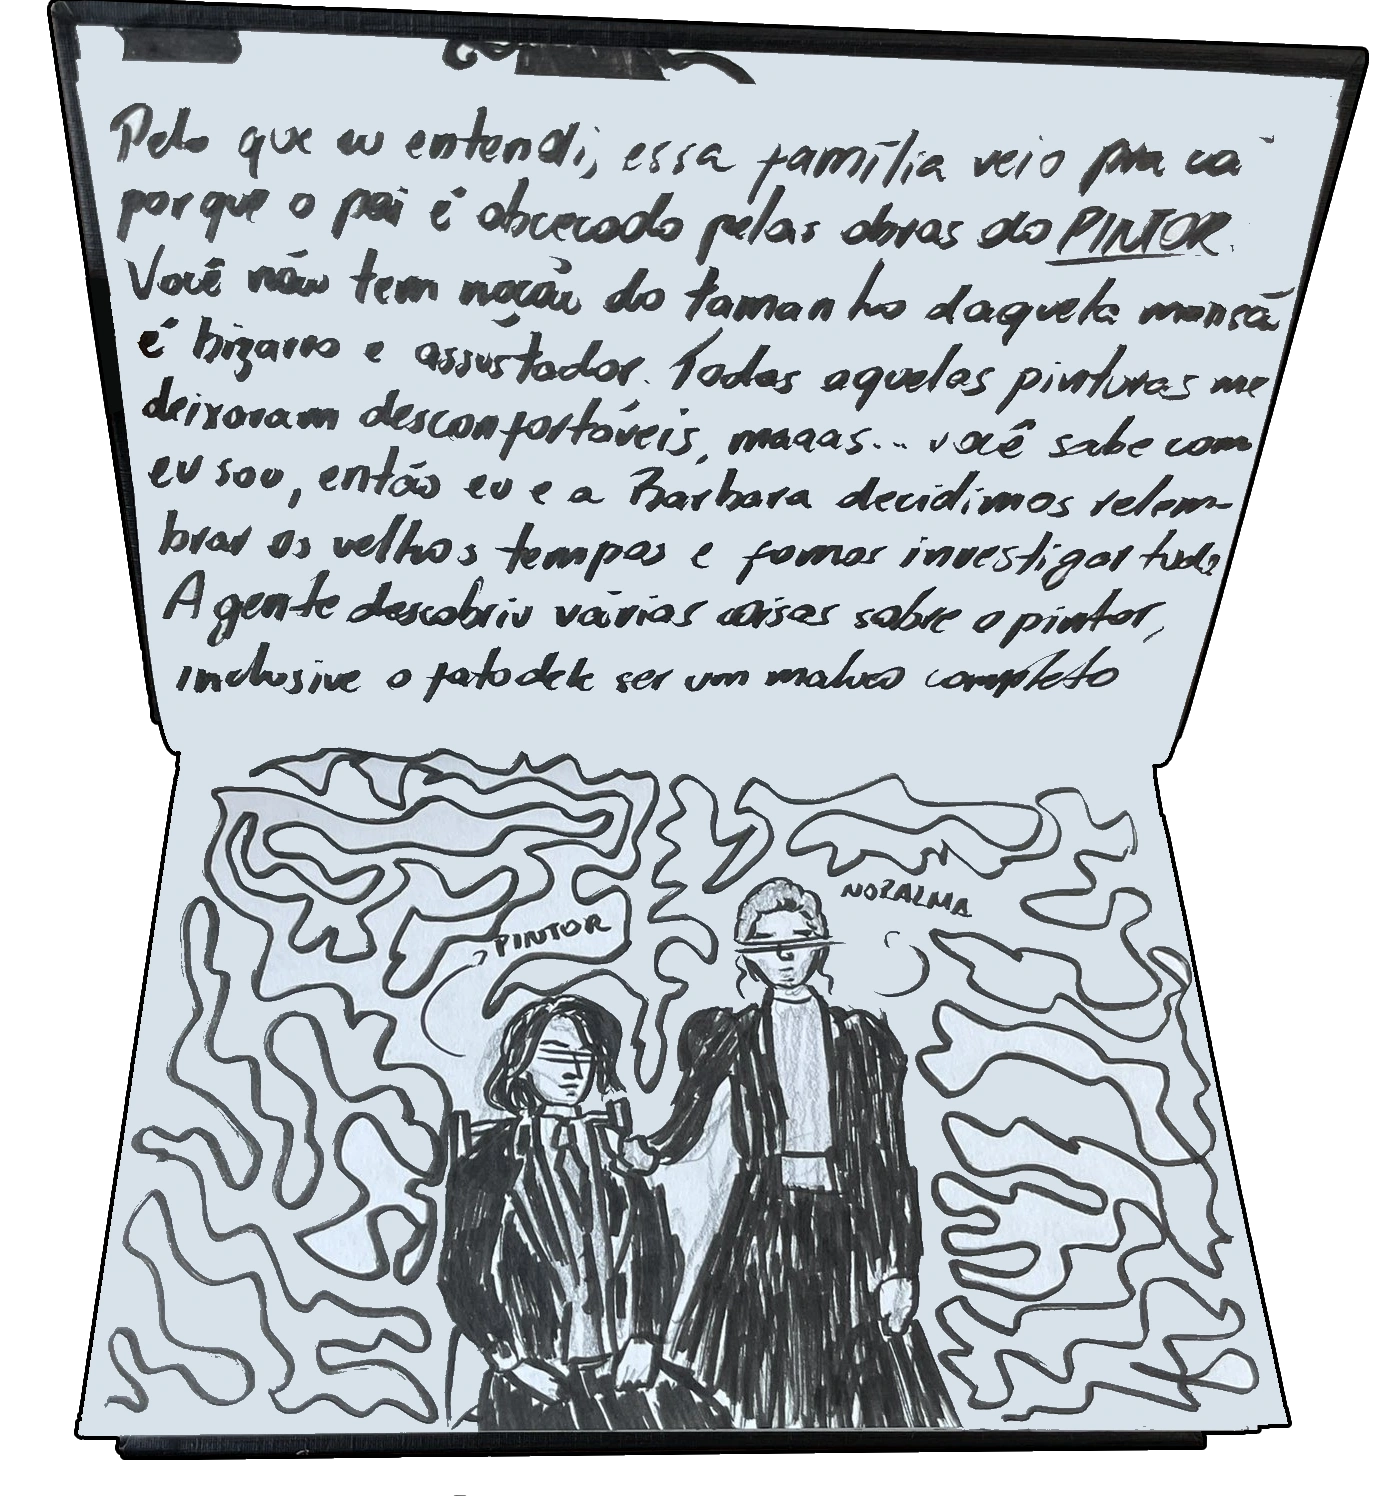 Pelo que eu entendi, essa família veio pra cá
porque o pai é obcecado pelas obras do PINTOR.
Você não tem noção do tamanho daquela mansã
é bizarro e assustador. Todas aquelas pinturas me
deixaram desconfortáveis, maaas... você sabe como
eu sou, então eu e a Bárbara decidimos relem-
brar os velhos tempos e fomos investigar tudo
A gente descobriu várias coisas sobre o pintor,
inclusive o fato dele ser um maluco completo
NOZALMA
PINTOR